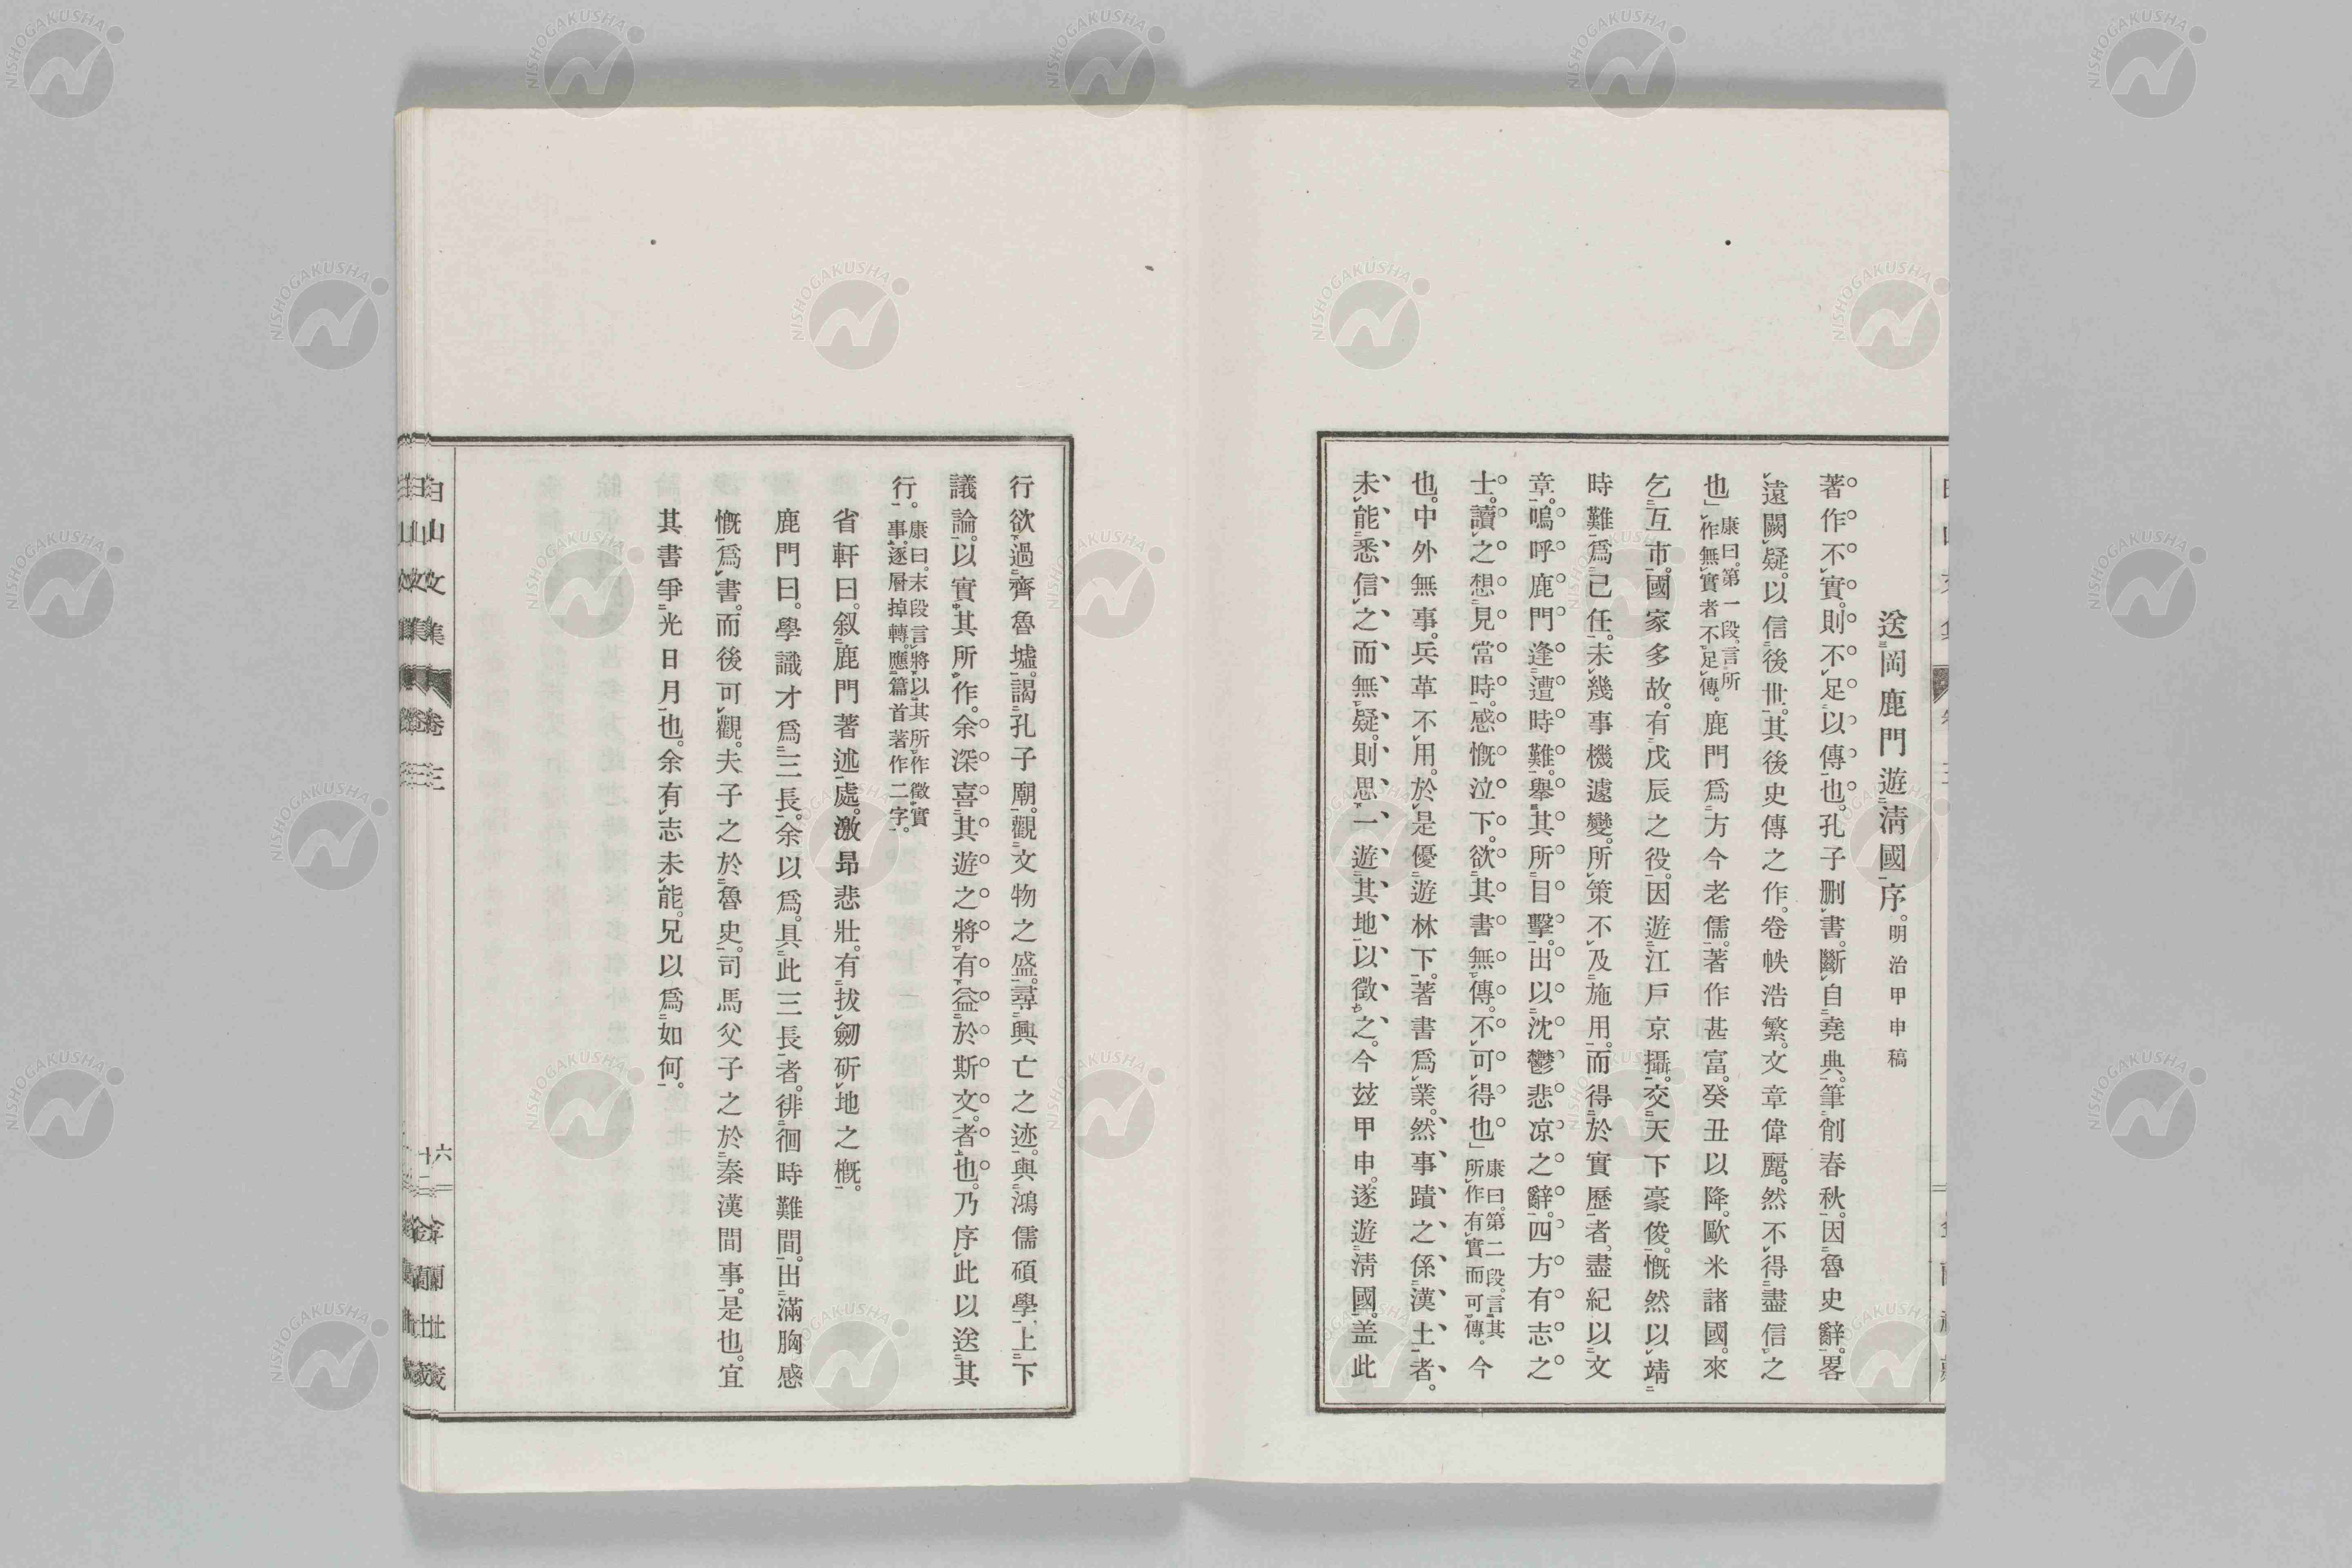 送岡鹿門遊清國序。明治甲申稿
著作不實。則不足以傳也。孔子刪書。斷自堯典。筆削春秋。因魯史辭。畧
遠闕疑。以信後世。其後史傳之作。卷帙浩繁。文章偉麗。然不得盡信之
也」康曰。第一段。言所作無實者不足傳。鹿門爲方今老儒。著作甚富。癸丑以降。歐米諸國。來
乞互市。國家多故。有戊辰之役。因遊江戶京攝。交天下豪俊。慨然以靖
時難爲己任。未幾事機遽變。所策不及施用。而得於實歷者。盡紀以文
章。嗚呼鹿門逢遭時難。舉其所目擊。出以沈鬱悲凉之辭。四方有志之
士。讀之想見當時。感慨泣下。欲其書無傳。不可得也」康曰。第二段。言其所作有實而可傳。今
也。中外無事。兵革不用。於是優遊林下。著書爲業。然事蹟之係漢土者。
未能悉信之而無疑。則思一遊其地以徵之。今玆甲申。遂遊清國。盖此
行欲過齊魯墟。謁孔子廟。觀文物之盛。尋興亡之迹。與鴻儒碩學上下
議論。以實其所作。余深喜其遊之將有益於斯文者也。乃序此以送其
行。康曰。末段言將以其所作徵實事。逐層掉轉。應篇首著作二字。
省軒曰。叙鹿門著述處。激昻悲壯。有拔劒斫地之概。
鹿門曰。學識才爲三長。余以爲。具此三長者。徘徊時難間。出滿胸感
慨爲書。而後可觀。夫子之於魯史。司馬父子之於秦漢間事。是也。宜
其書爭光日月也。余有志未能。兄以爲如何。
白山文集
卷三
金蘭社藏
NISHOGAKUSHA